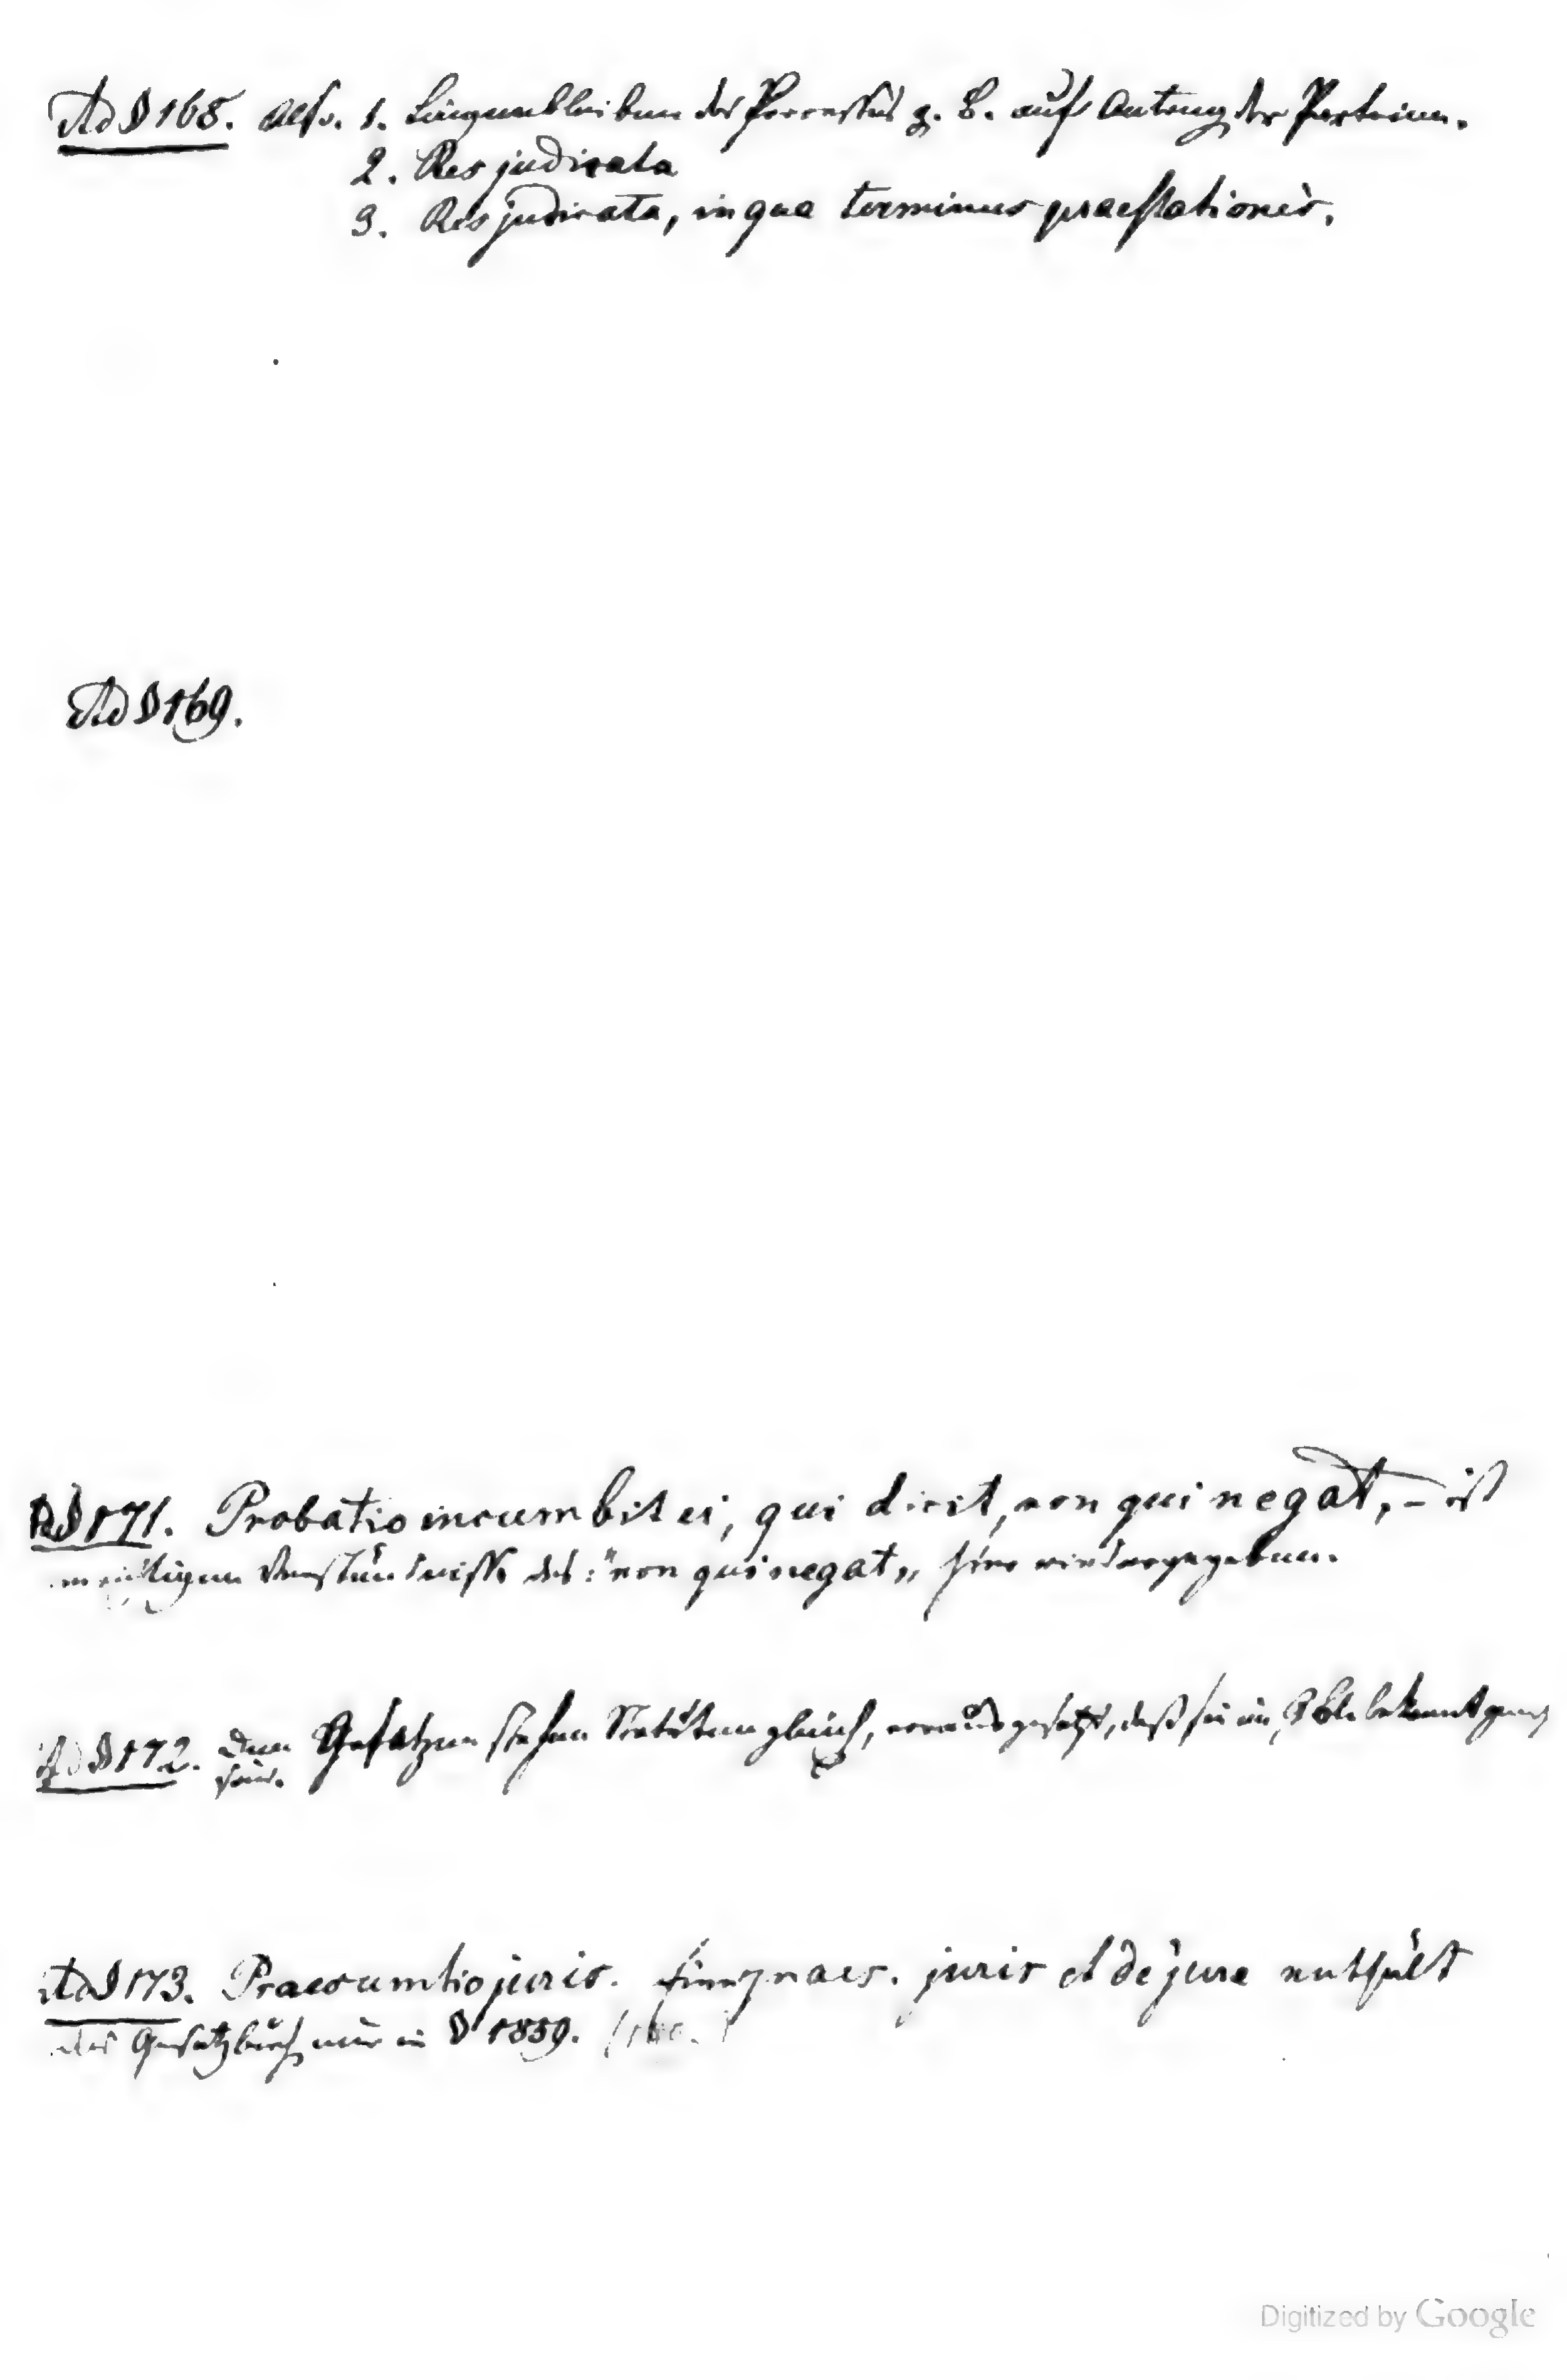 Ad § 168. Also. 1. Liegenbleiben des Processus z. B. auf Antrag der Parteien.
2. Res judicata
3. Res judicata, in qua terminus praestationis.
Ad § 169.
Ad § 171. Probatio incumbit ei, qui dicit, non qui negat, – ist
im richtigen Verständnisse des: "non qui negat„ hier wiedergegeben.
Ad § 172. Den Gesetzen stehen Statuten gleich, vorausgesetzt, daß sie im bekannt
sind.
Ad § 173. Praesumtio juris. Eine praes. juris et de jure enthält
das Gesetzbuch nur in § 1859.
Digitized by Google